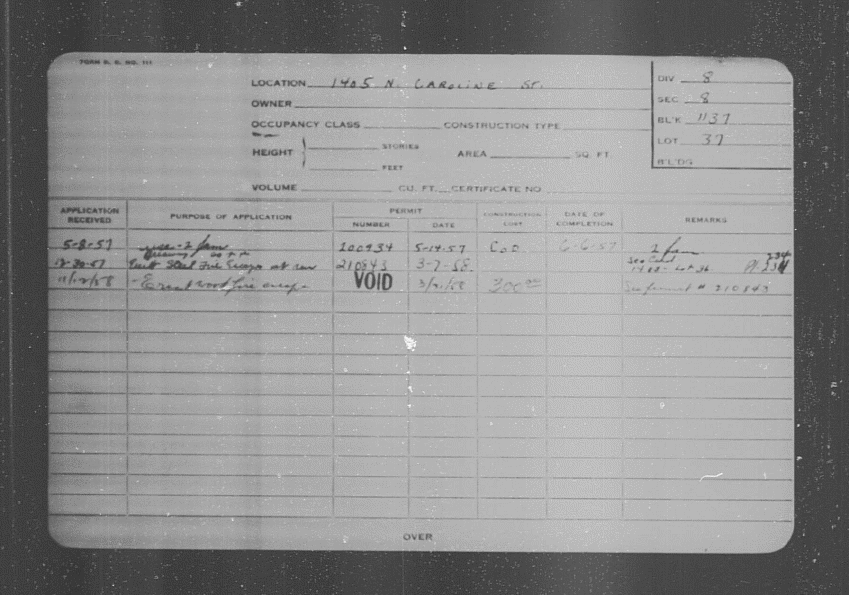 FORM B. E. NO. 111
LOCATION 1405 N. CAROLINE ST.
DIV 8
OWNER
SEC 8
OCCUPANCY CLASS CONSTRUCTION TYPE
BL'K 1137
HEIGHT STORIES FEET AREA SQ. FT.
LOT 37
B'LDG
VOLUME CU. FT. CERTIFICATE NO
APPLICATION RECEIVED PURPOSE OF APPLICATION PERMIT NUMBER DATE CONSTRUCTION COST DATE OF COMPLETION REMARKS
5-8-57 use-2 fam 200934 5-14-57 C.O.D. 6-6-57 2 fam
12-30-57 Erect Steel Fire Escape at rear 210843 3-7-58 See Card
- Erect wood fire escape VOID 300.00 See permit # 210843
OVER